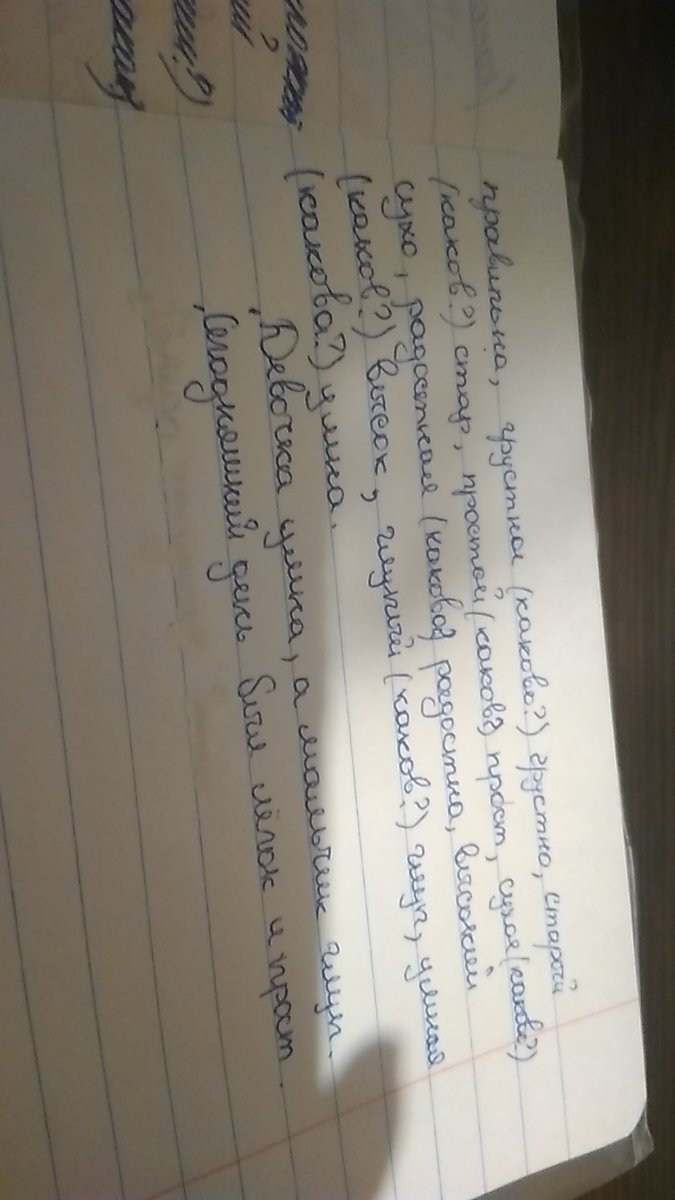 правильна, грустное (каково?) грустно, старый
(каков?) стар, простой (каков?) прост, сухое (каково?)
сухо, радостная (какова?) радостна, высокий
(каков?) высок, глупый (каков?) глуп, умная
(какова?) умна.
Девочка умна, а мальчик глуп.
день был лёгок и прост.